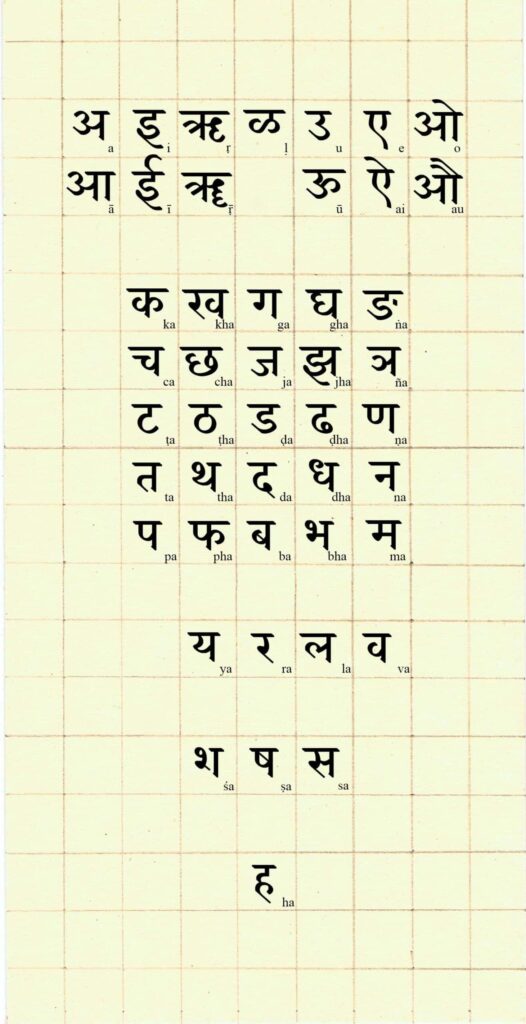 अ इ ऋ ळ उ ए ओ
a i ṛ ḷ u e o
आ ई ॠ ऊ ऐ औ
ā ī ṝ ū ai au
क ख ग घ ङ
ka kha ga gha ṅa
च छ ज झ ञ
ca cha ja jha ña
ट ठ ड ढ ण
ṭa ṭha ḍa ḍha ṇa
त थ द ध न
ta tha da dha na
प फ ब भ म
pa pha ba bha ma
य र ल व
ya ra la va
श ष स
śa ṣa sa
ह
ha